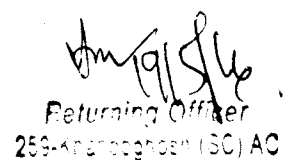 19/5/16
Returning Officer
259-Khandaghosh (SC) AC